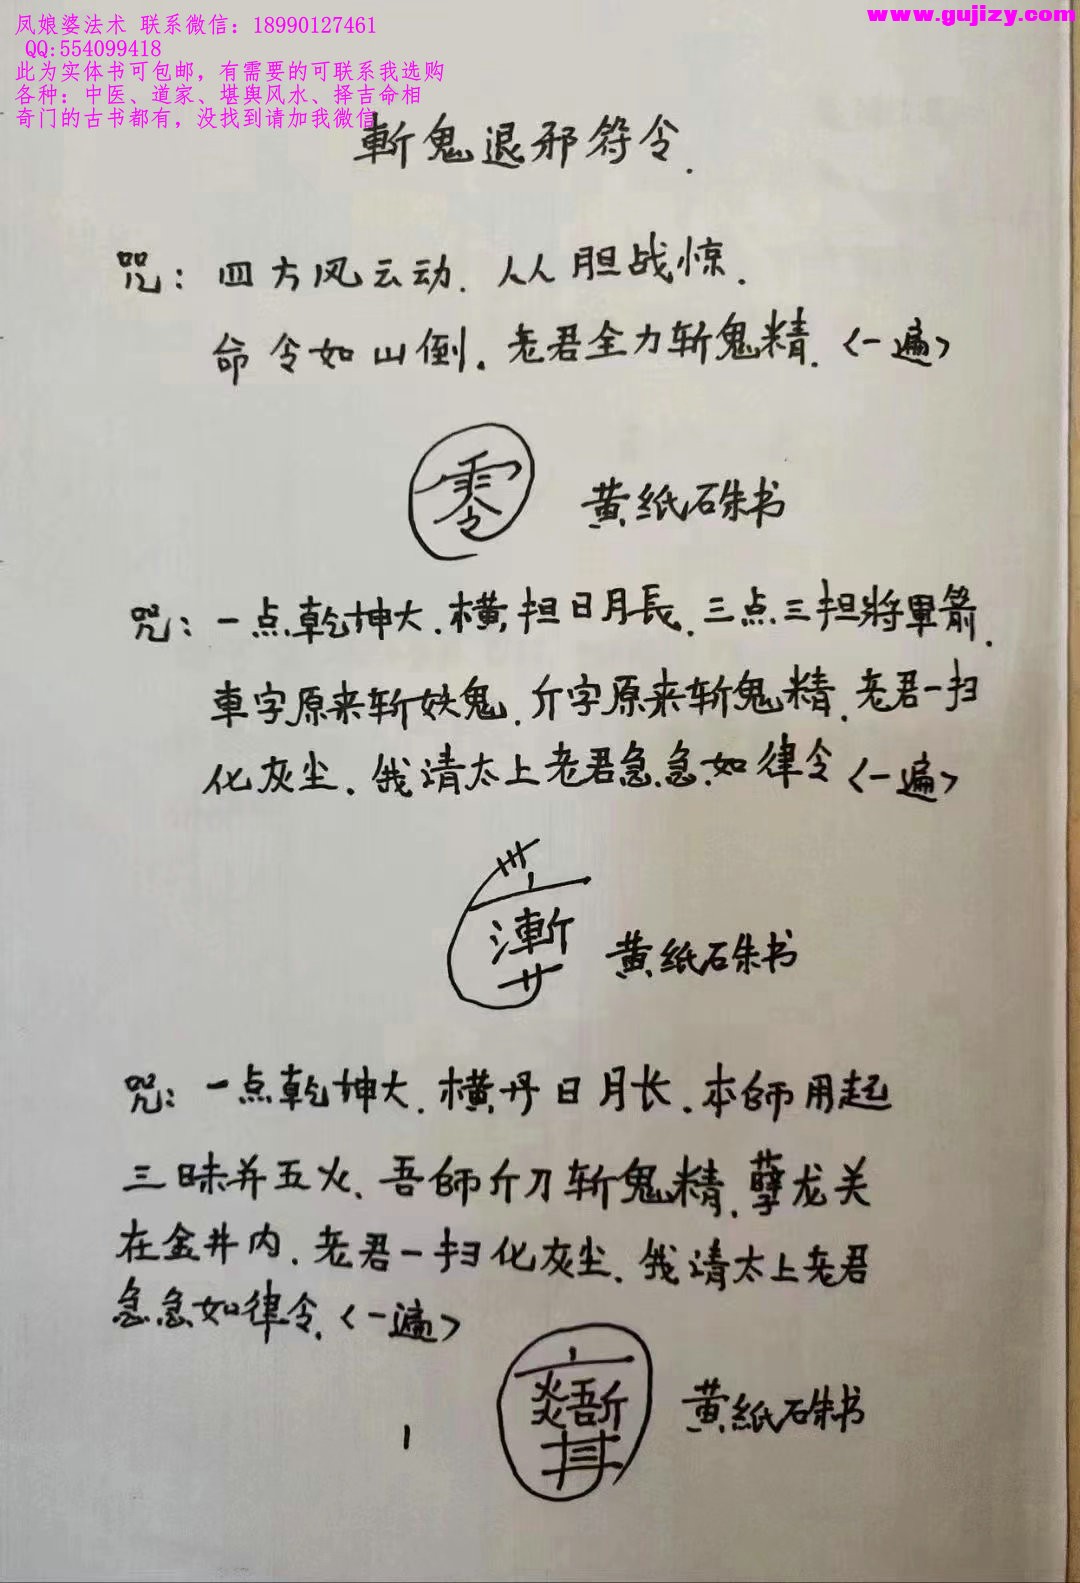 凤娘婆法术 联系微信：18990127461
QQ:554099418
此为实体书可包邮，有需要的可联系我选购
各种：中医、道家、堪舆风水、择吉命相
奇门的古书都有，没找到请加我微信
www.gujizy.com
斬鬼退邪符令.
咒：四方风云动.人人胆战惊.
命令如山倒.老君全力斩鬼精.<一遍>
零
黄纸硃书
咒：一点乾坤大.横担日月長.三点三担將軍箭.
車字原来斩妖鬼.斤字原来斩鬼精.老君一扫
化灰尘.我请太上老君急急如律令<一遍>
黄纸硃书
咒：一点乾坤大.横丹日月长.本師用起
三昧并五火、吾師斤刀斩鬼精.孽龙关
在金井内.老君一扫化灰尘.我请太上老君
急急如律令.<一遍>
黄紙硃书
1